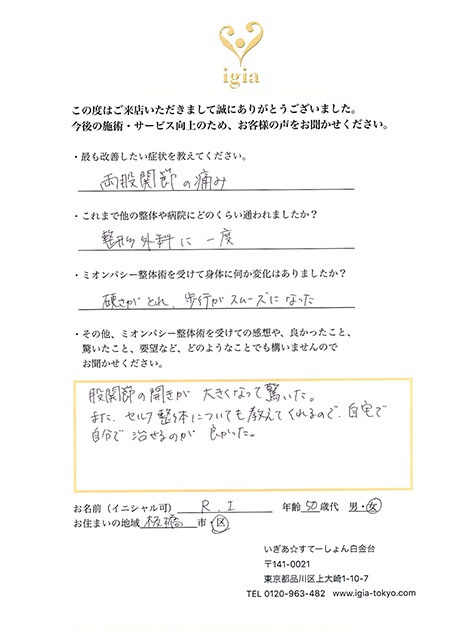 igia
この度はご来店いただきまして誠にありがとうございました。
今後の施術・サービス向上のため、お客様の声をお聞かせください。
・最も改善したい症状を教えてください。
両股関節の痛み
・これまで他の整体や病院にどのくらい通われましたか？
整形外科に一度
・ミオンパシー整体術を受けて身体に何か変化はありましたか？
硬さがとれ、歩行がスムーズになった
・その他、ミオンパシー整体術を受けての感想や、良かったこと、
驚いたこと、要望など、どのようなことでも構いませんので
お聞かせください。
股関節の開きが 大きくなって驚いた。
また、セルフ整体についても教えてくれるので、自宅で
自分で治せるのが 良かった。
お名前（イニシャル可） R.I 年齢 50 歳代 男・女
お住まいの地域 板橋 市・区
いぎあ☆すてーしょん白金台
〒141-0021
東京都品川区上大崎1-10-7
TEL 0120-963-482 www.igia-tokyo.com